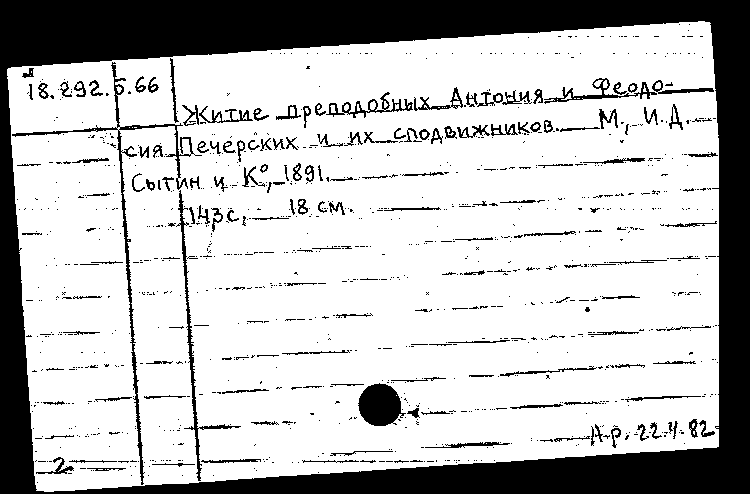 18.292.5.66
Житие преподобных Антония и Феодо-
сия Печерских и их сподвижников. М., И.Д.
Сытин и Кº, 1891.
143 с. 18 см.
Ар. 22.4.82
2